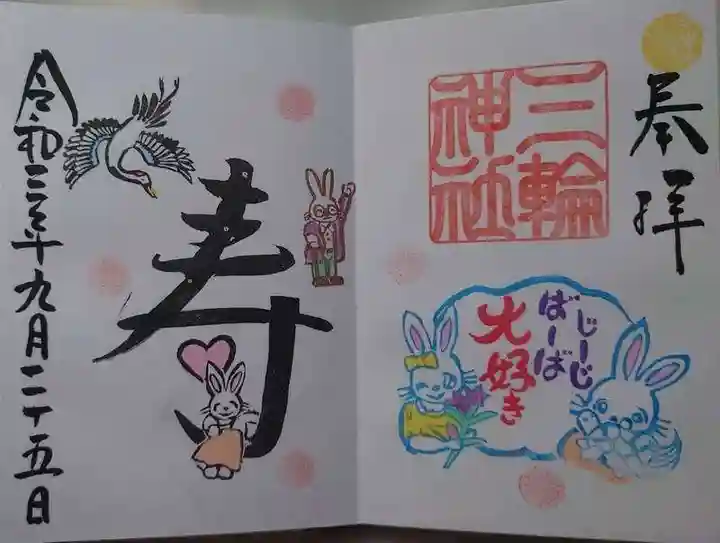 奉拝
三輪
神社
じーじ
ばーば
大好き
寿
令和三年九月二十五日